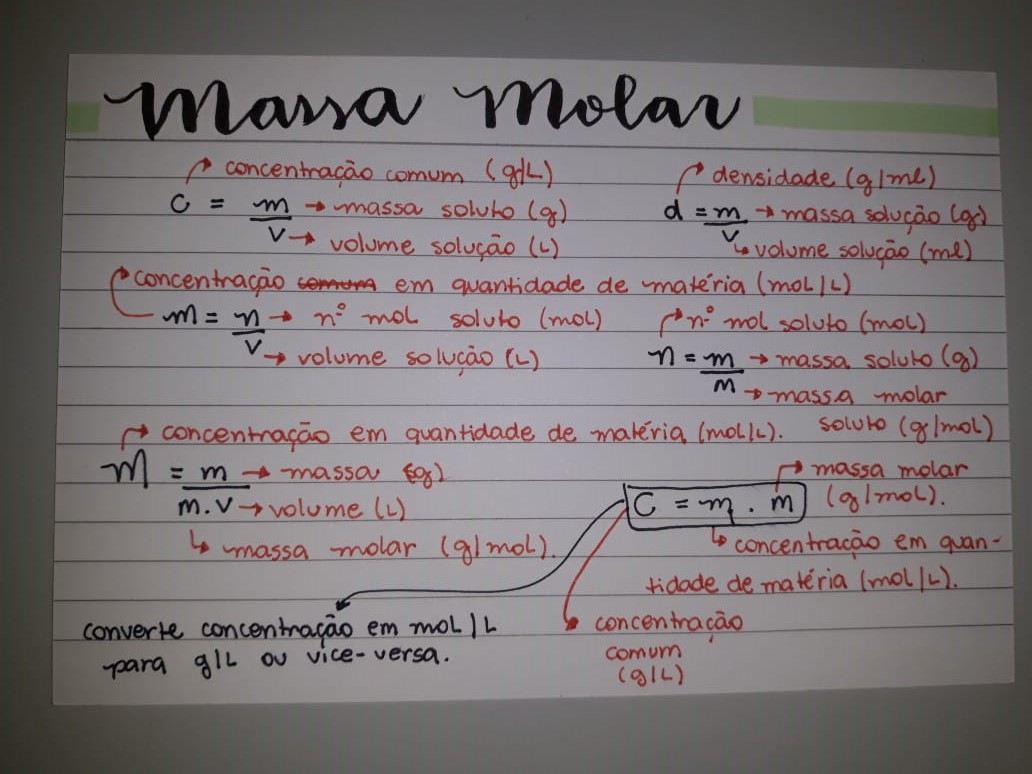 Massa Molar
concentração comum (g/L)
C = m → massa soluto (g)
V → volume solução (L)
densidade (g/ml)
d = m → massa solução (g)
V ↳ volume solução (ml)
concentração comum em quantidade de matéria (mol/L)
m = n → nº mol soluto (mol)
V → volume solução (L)
nº mol soluto (mol)
n = m → massa soluto (g)
m → massa molar
soluto (g/mol)
concentração em quantidade de matéria (mol/L).
M = m → massa (g)
m.V → volume (L)
↳ massa molar (g/mol).
massa molar
(g/mol).
C = m . m
↳ concentração em quan-
tidade de matéria (mol/L).
concentração
comum
(g/L)
converte concentração em mol/L
para g/L ou vice-versa.